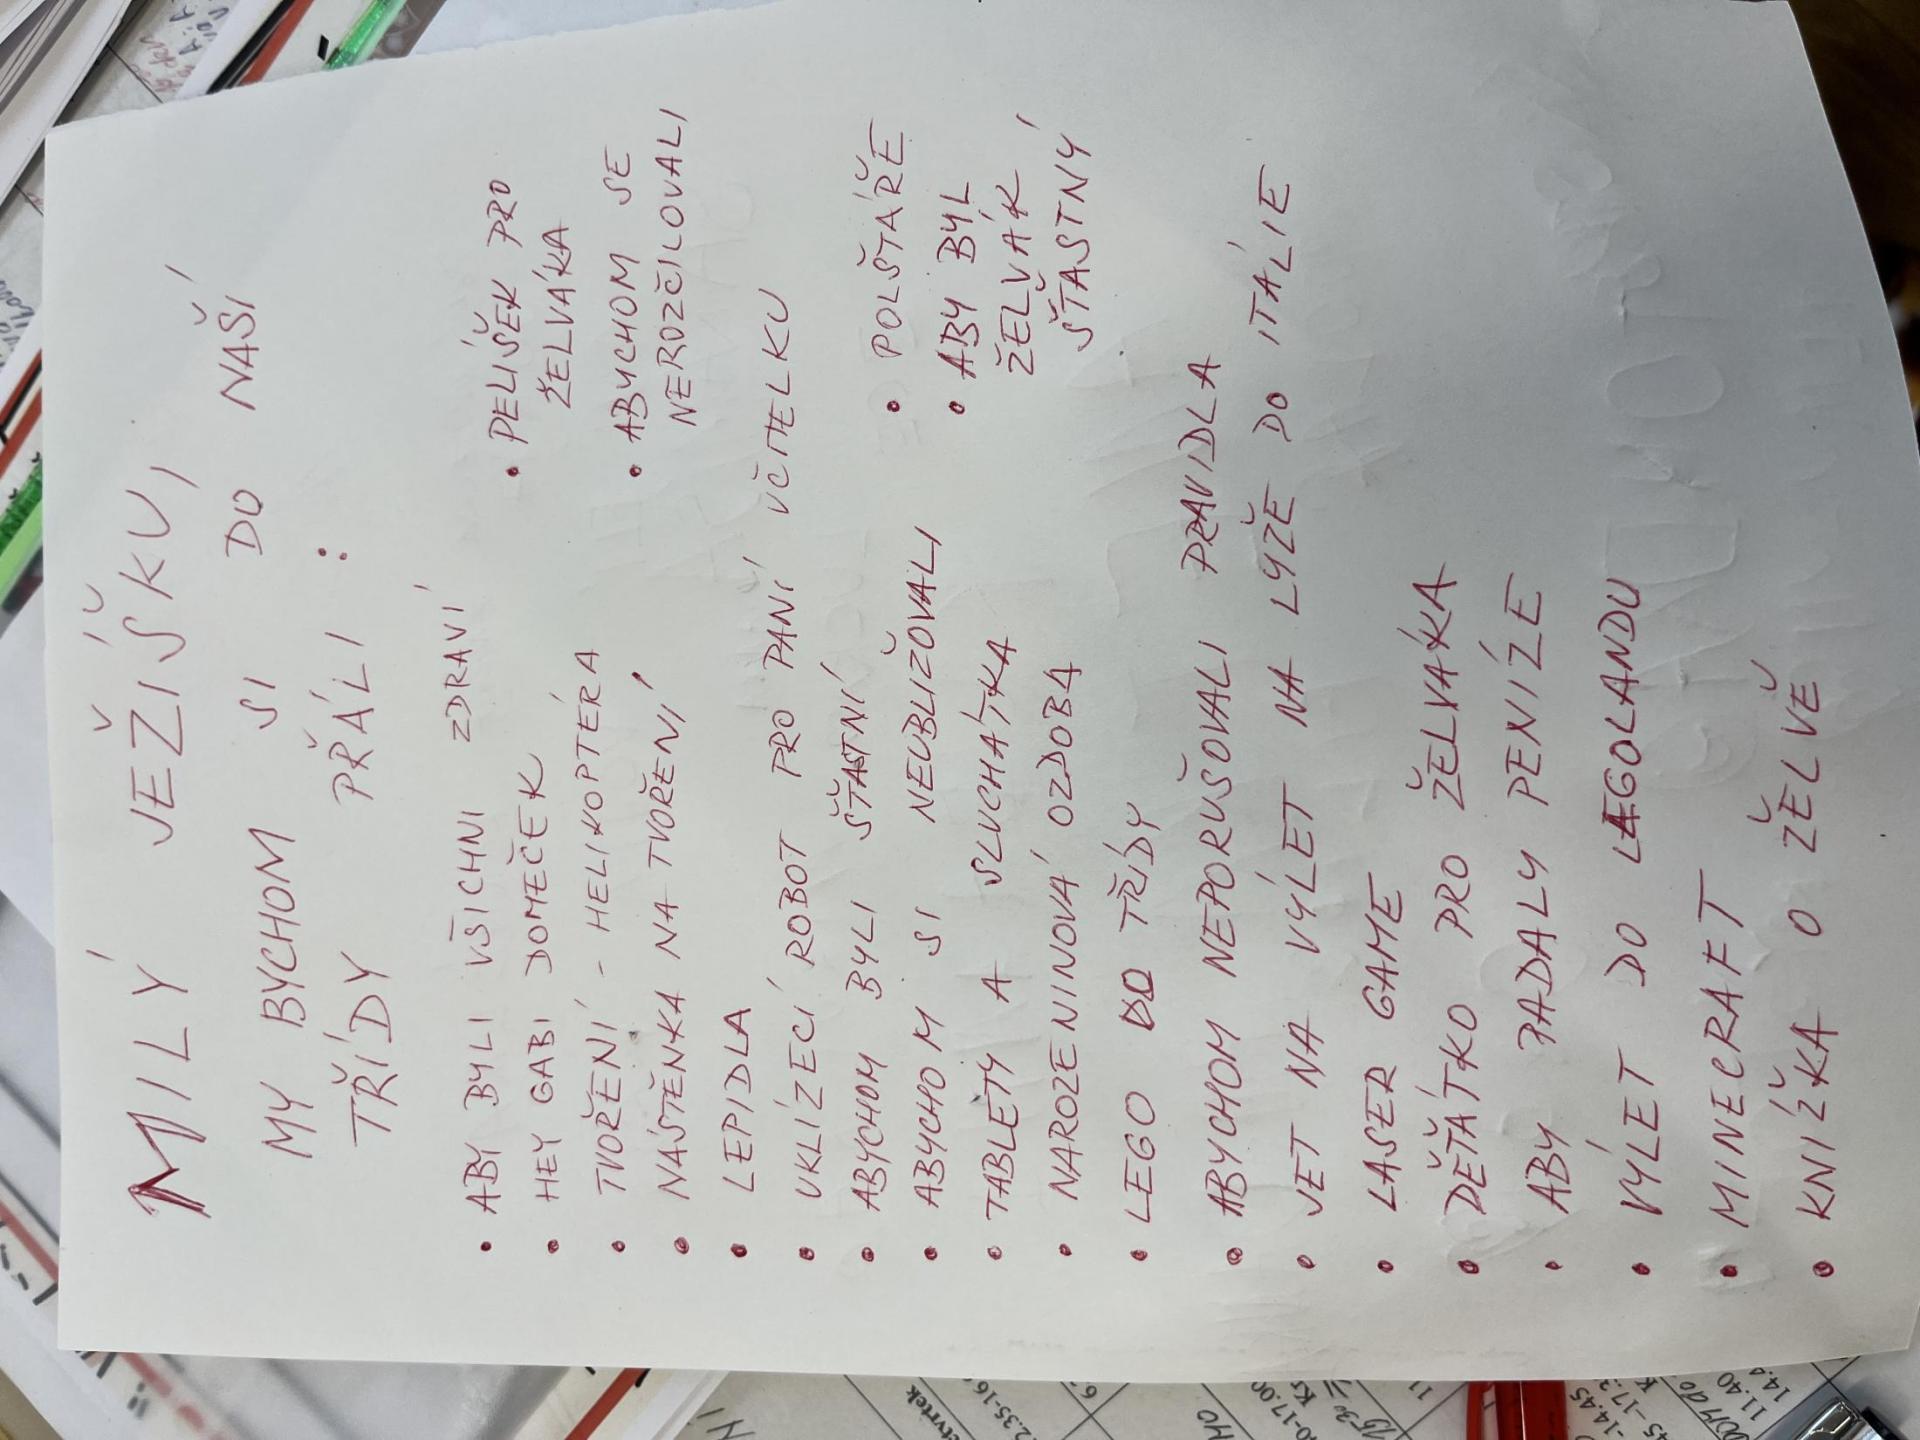 MILÝ JEŽÍŠKU,
MY BYCHOM SI DO NAŠÍ
TŘÍDY PŘÁLI :
• ABY BYLI VŠICHNI ZDRAVÍ
• HEY GABI DOMEČEK
• TVOŘENÍ - HELIKOPTÉRA
• NÁSTĚNKA NA TVOŘENÍ
• LEPIDLA
• UKLÍZECÍ ROBOT PRO PANÍ UČITELKU
• ABYCHOM BYLI ŠŤASTNÍ
• ABYCHOM SI NEUBLIŽOVALI
• TABLETY A SLUCHÁTKA
• NAROZENINOVÁ OZDOBA
• LEGO DO TŘÍDY
• ABYCHOM NEPORUŠOVALI PRAVIDLA
• JET NA VÝLET NA LYŽE DO ITÁLIE
• LASER GAME
• DĚŤÁTKO PRO ŽELVÁKA
• ABY PADALY PENÍZE
• VÝLET DO LEGOLANDU
• MINECRAFT
• KNÍŽKA O ŽELVĚ
• PELÍŠEK PRO
ŽELVÁKA
• ABYCHOM SE
NEROZČILOVALI
• POLŠTÁŘE
• ABY BYL
ŽELVÁK
ŠŤASTNÝ
čtvrtek
11.40